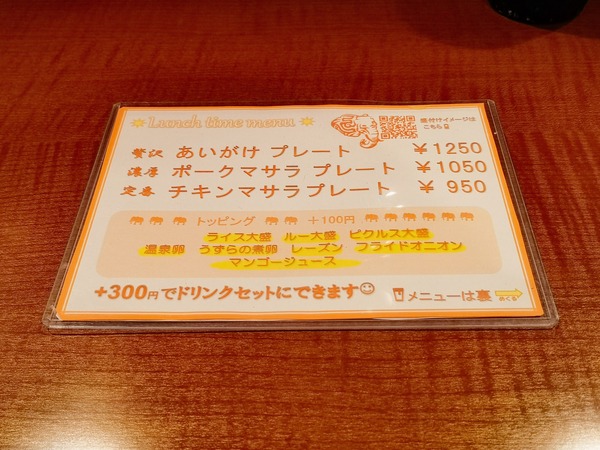 Lunch time menu
盛付けイメージは
こちら
贅沢 あいがけ プレート ￥1250
濃厚 ポークマサラ プレート ￥1050
定番 チキンマサラプレート ￥950
トッピング ＋100円
ライス大盛 ルー大盛 ピクルス大盛
温泉卵 うずらの煮卵 レーズン フライドオニオン
マンゴージュース
+300円でドリンクセットにできます
メニューは裏 めくる